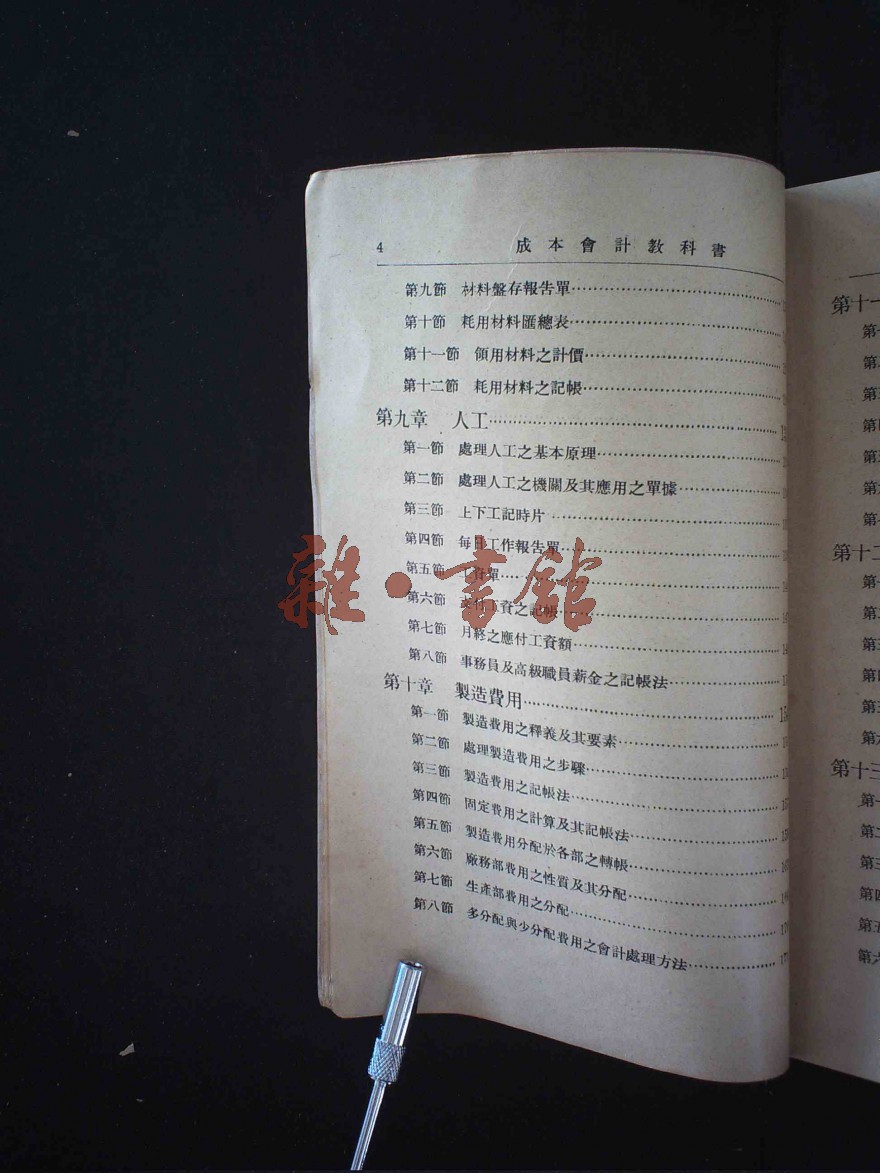 4 成本會計教科書
第九節 材料盤存報告單
第十節 耗用材料匯總表
第十一節 領用材料之計價
第十二節 耗用材料之記帳
第九章 人工
第一節 處理人工之基本原理
第二節 處理人工之機關及其應用之單據
第三節 上下工記時片
第四節 每日工作報告單
第五節 工資單
第六節 支付工資之記帳
第七節 月終之應付工資額
第八節 事務員及高級職員薪金之記帳法
第十章 製造費用
第一節 製造費用之釋義及其要素
第二節 處理製造費用之步驟
第三節 製造費用之記帳法
第四節 固定費用之計算及其記帳法
第五節 製造費用分配於各部之轉帳
第六節 廠務部費用之性質及其分配
第七節 生產部費用之分配
第八節 多分配與少分配費用之會計處理方法
雜·書館
第十一
第十二
第十三